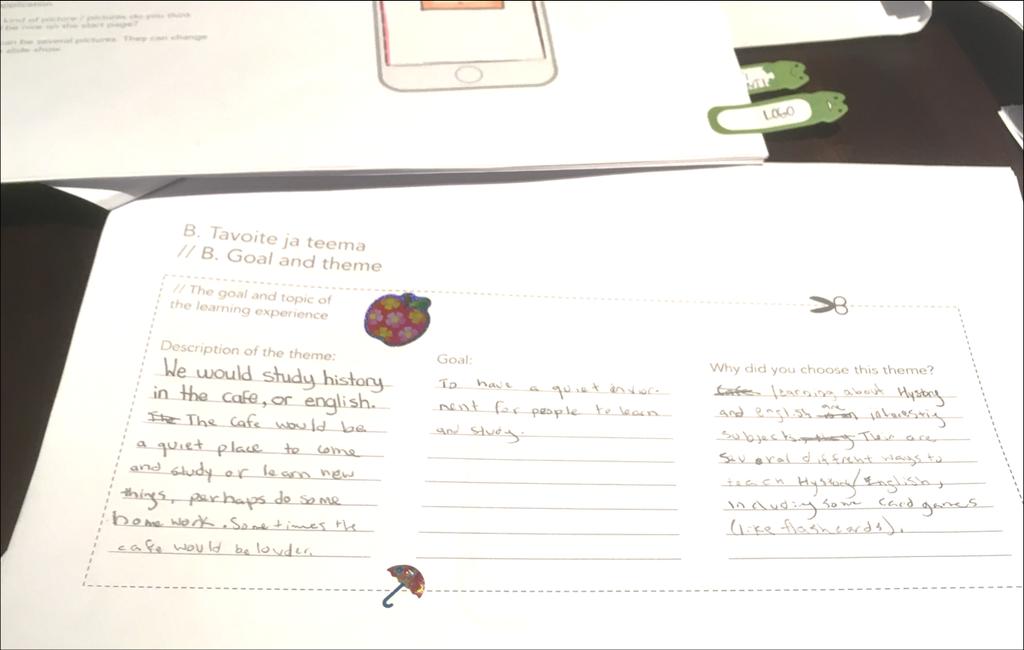 application.
kind of picture / pictures do you think
be nice on the start page?
can be several pictures. They can change
slide show.
LOGO
B. Tavoite ja teema
// B. Goal and theme
// The goal and topic of
the learning experience
Description of the theme:
We would study history
in the cafe, or english.
The Cafe would be
a quiet place to come
and study or learn new
things, perhaps do some
home work. Sometimes the
cafe would be louder.
Goal:
To have a quiet enviro-
nment for people to learn
and study.
Why did you choose this theme?
Cafe learning about Hystory
and english are interesting
subjects. Ther are
several diffrent ways to
teach Hystory/English,
including some card games
(like flashcards).